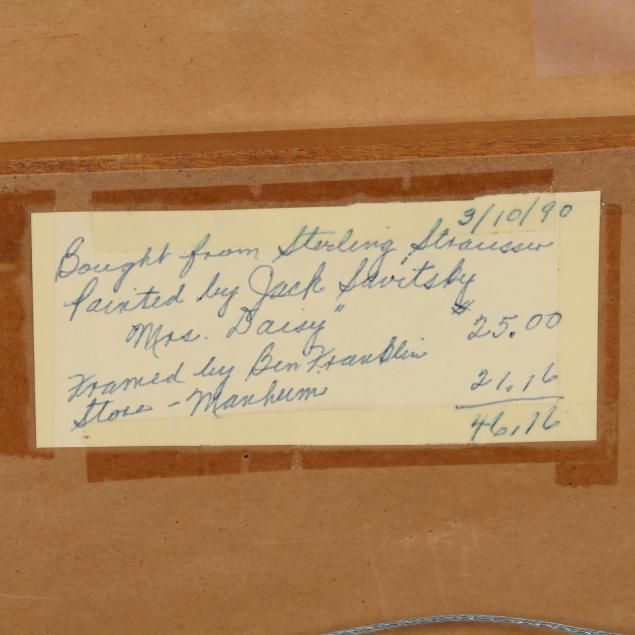 3/10/90
Bought from Sterling Strausser
Painted by Jack Savitsky
"Mrs. Daisy" $25.00
Framed by Ben Franklin
Store - Manheim 21.16
46.16